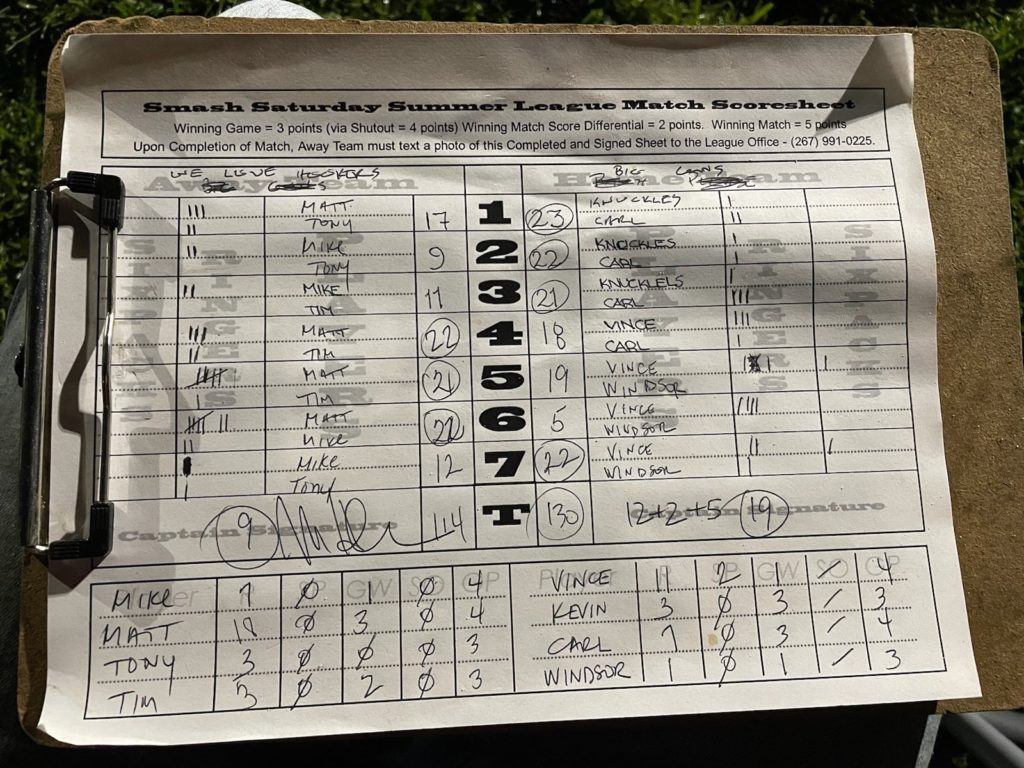 Smash Saturday Summer League Match Scoresheet
Winning Game = 3 points (via Shutout = 4 points) Winning Match Score Differential = 2 points. Winning Match = 5 points
Upon Completion of Match, Away Team must text a photo of this Completed and Signed Sheet to the League Office - (267) 991-0225.
WE LOVE HOOKERS BIG CONS
Away Team Home Team
SIXPACKS RINGERS PLAYERS PLAYERS RINGERS SIXPACKS
MATT 17 1 23 KNUCKLES
TONY CARL
MIKE 9 2 22 KNUCKLES
TONY CARL
MIKE 11 3 21 KNUCKLELS
TIM CARL
MATT 22 4 18 VINCE
TIM CARL
MATT 21 5 19 VINCE
TIM WINDSOR
MATT 22 6 5 VINCE
MIKE WINDSOR
MIKE 12 7 22 VINCE
TONY WINDSOR
Captain Signature 9 114 T 130 12+2+5 19 Captain Signature
Player R SP GW SO GP Player R SP GW SO GP
MIKE 7 0 0 4 VINCE 11 2 1 / 4
MATT 18 0 3 0 4 KEVIN 3 0 3 / 3
TONY 3 0 0 0 3 CARL 7 0 3 / 4
TIM 3 0 2 0 3 WINDSOR 1 0 1 / 3